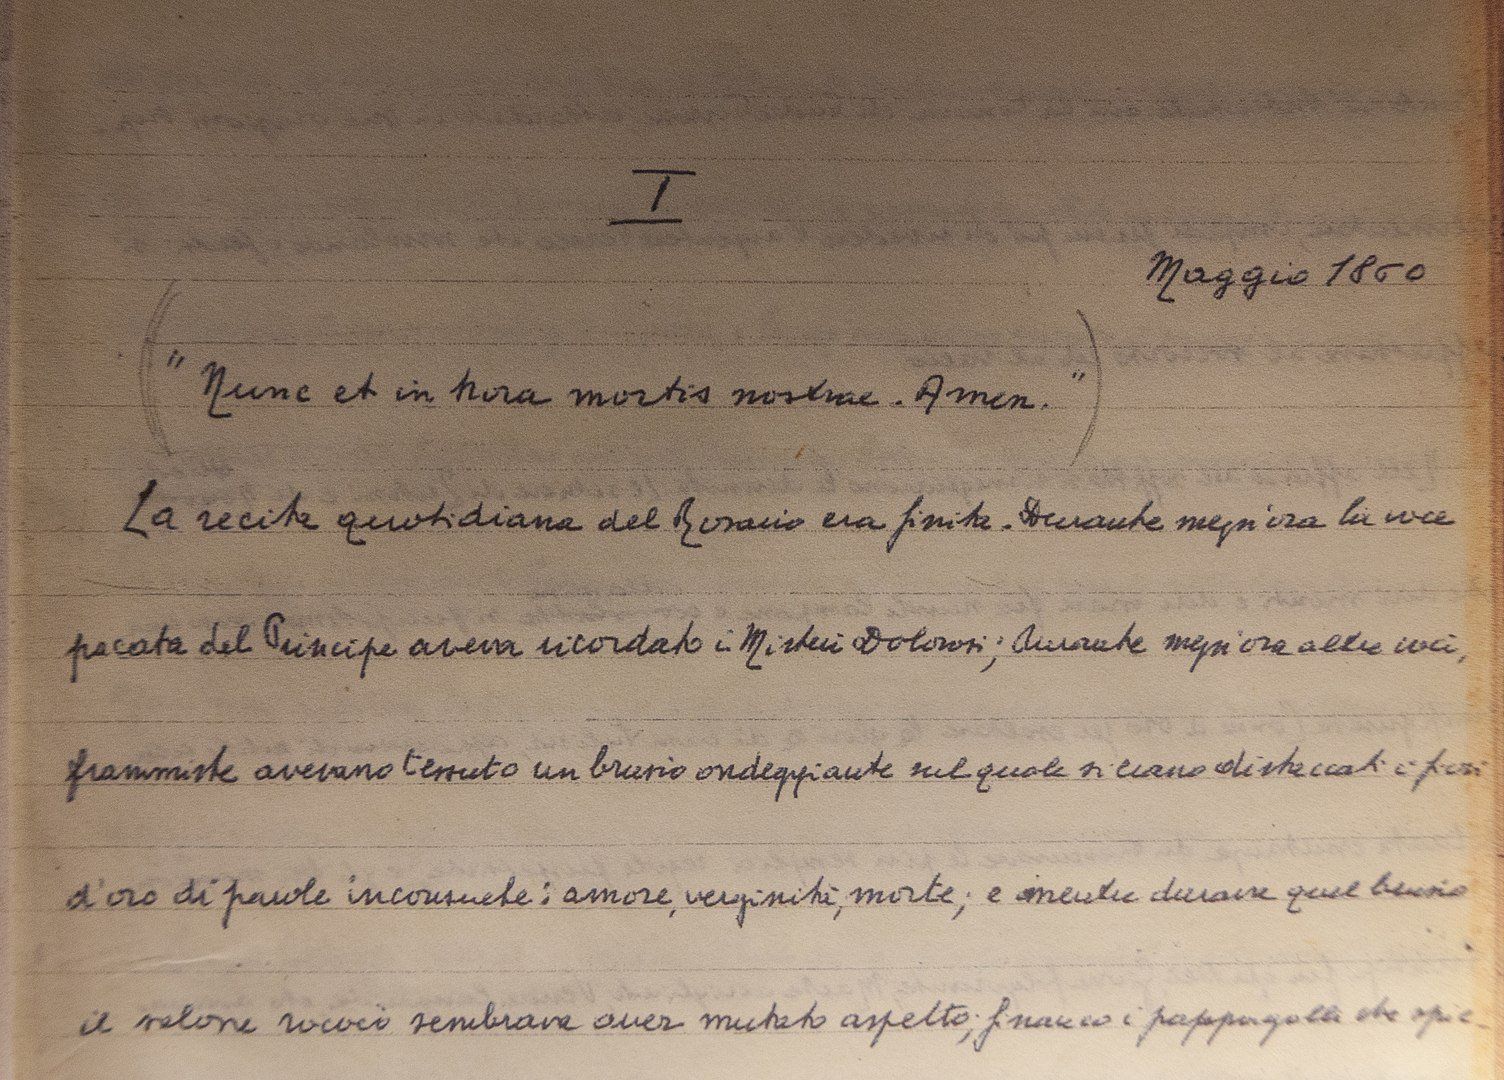 I
Maggio 1860
("Nunc et in hora mortis nostrae. Amen.")
La recita quotidiana del Rosario era finita. Durante mezz'ora la voce
pacata del Principe aveva ricordato i Misteri Dolorosi; durante mezz'ora altre voci,
frammiste avevano tessuto un brusio ondeggiante sul quale si erano distaccati i fiori
d'oro di parole inconsuete: amore, verginità, morte; e mentre durava quel brusio
il salone rococò sembrava aver mutato aspetto; financo i pappagalli che spie-